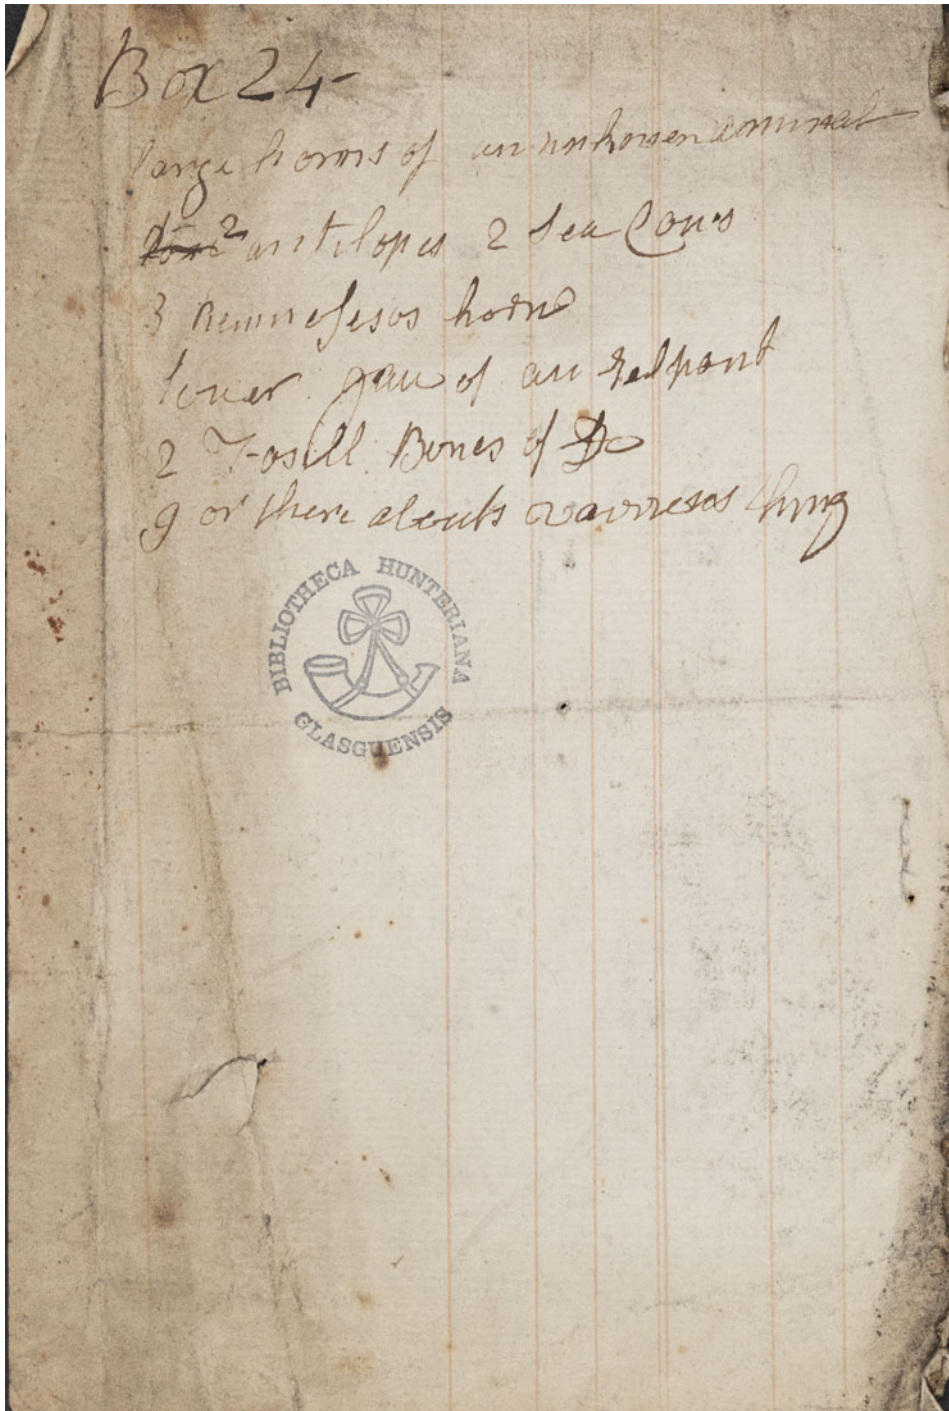 Box 24
large horns of an unknowen anninal
2 antelopes 2 Sea Cows
3 horn
lower jaw of an
2 Fosill Bones of Do
9 or there abouts thing
BIBLIOTHECA HUNTERIANA
GLASGUENSIS